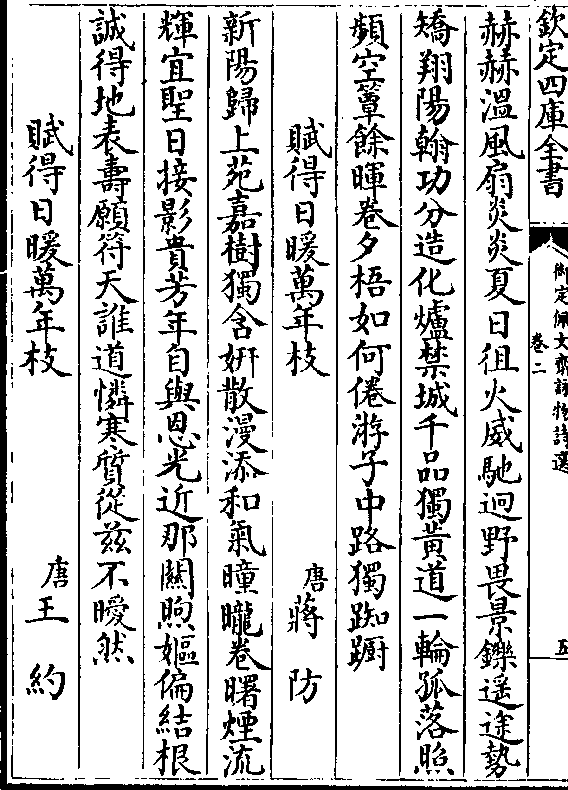 欽定四庫全書
御定佩文齋詠物詩選
卷二
五
赫赫溫風扇炎炎夏日徂火威馳迥野畏景鑠遥途勢
矯翔陽翰功分造化爐禁城千品獨黃道一輪孤落照
頻空簟餘暉卷夕梧如何倦游子中路獨踟蹰
賦得日暖萬年枝
唐蔣防
新陽歸上苑嘉樹獨含妍散漫添和氣曈曨卷曙煙流
輝宜聖日接影貴芳年自與恩光近那關煦嫗偏結根
誠得地表壽願符天誰道憐寒質從兹不曖然
賦得日暖萬年枝
唐王約